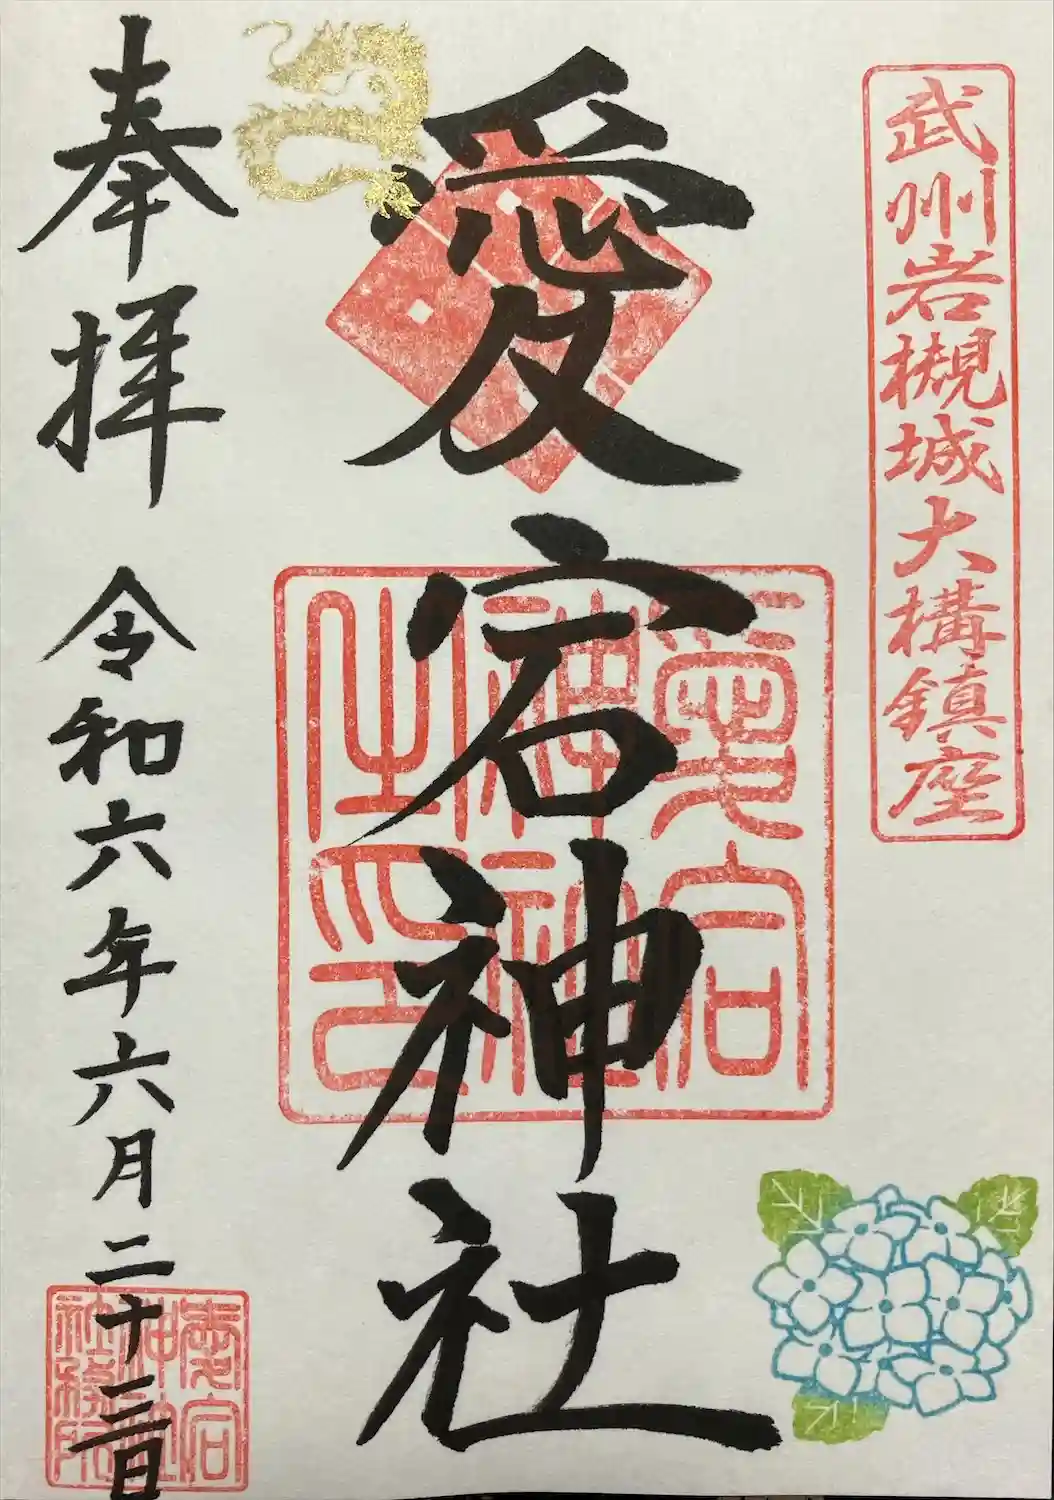 武州岩槻城大構鎮座
愛宕神社
愛宕
神社
之印
奉拝
令和六年六月二十三日
愛宕
神社
社務所